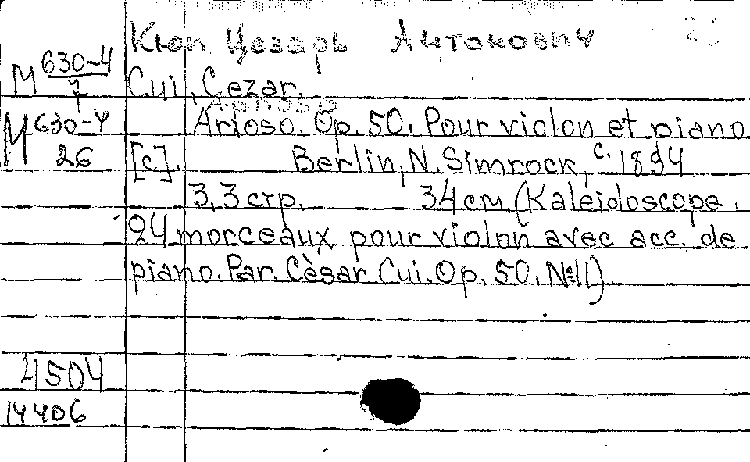 Кюи Цезарь Антонович
М 630-4/7
Cui, Cezar.
М 630-4/26
Arioso. Op. 50. Pour violon et piano
[c]. Berlin, N. Simrock, c. 1894
3,3 стр. 34 см (Kaleidoscope.
24 morceaux pour violon avec acc. de
piano. Par. Cèsar Cui. Op. 50. №11)
4504
14406